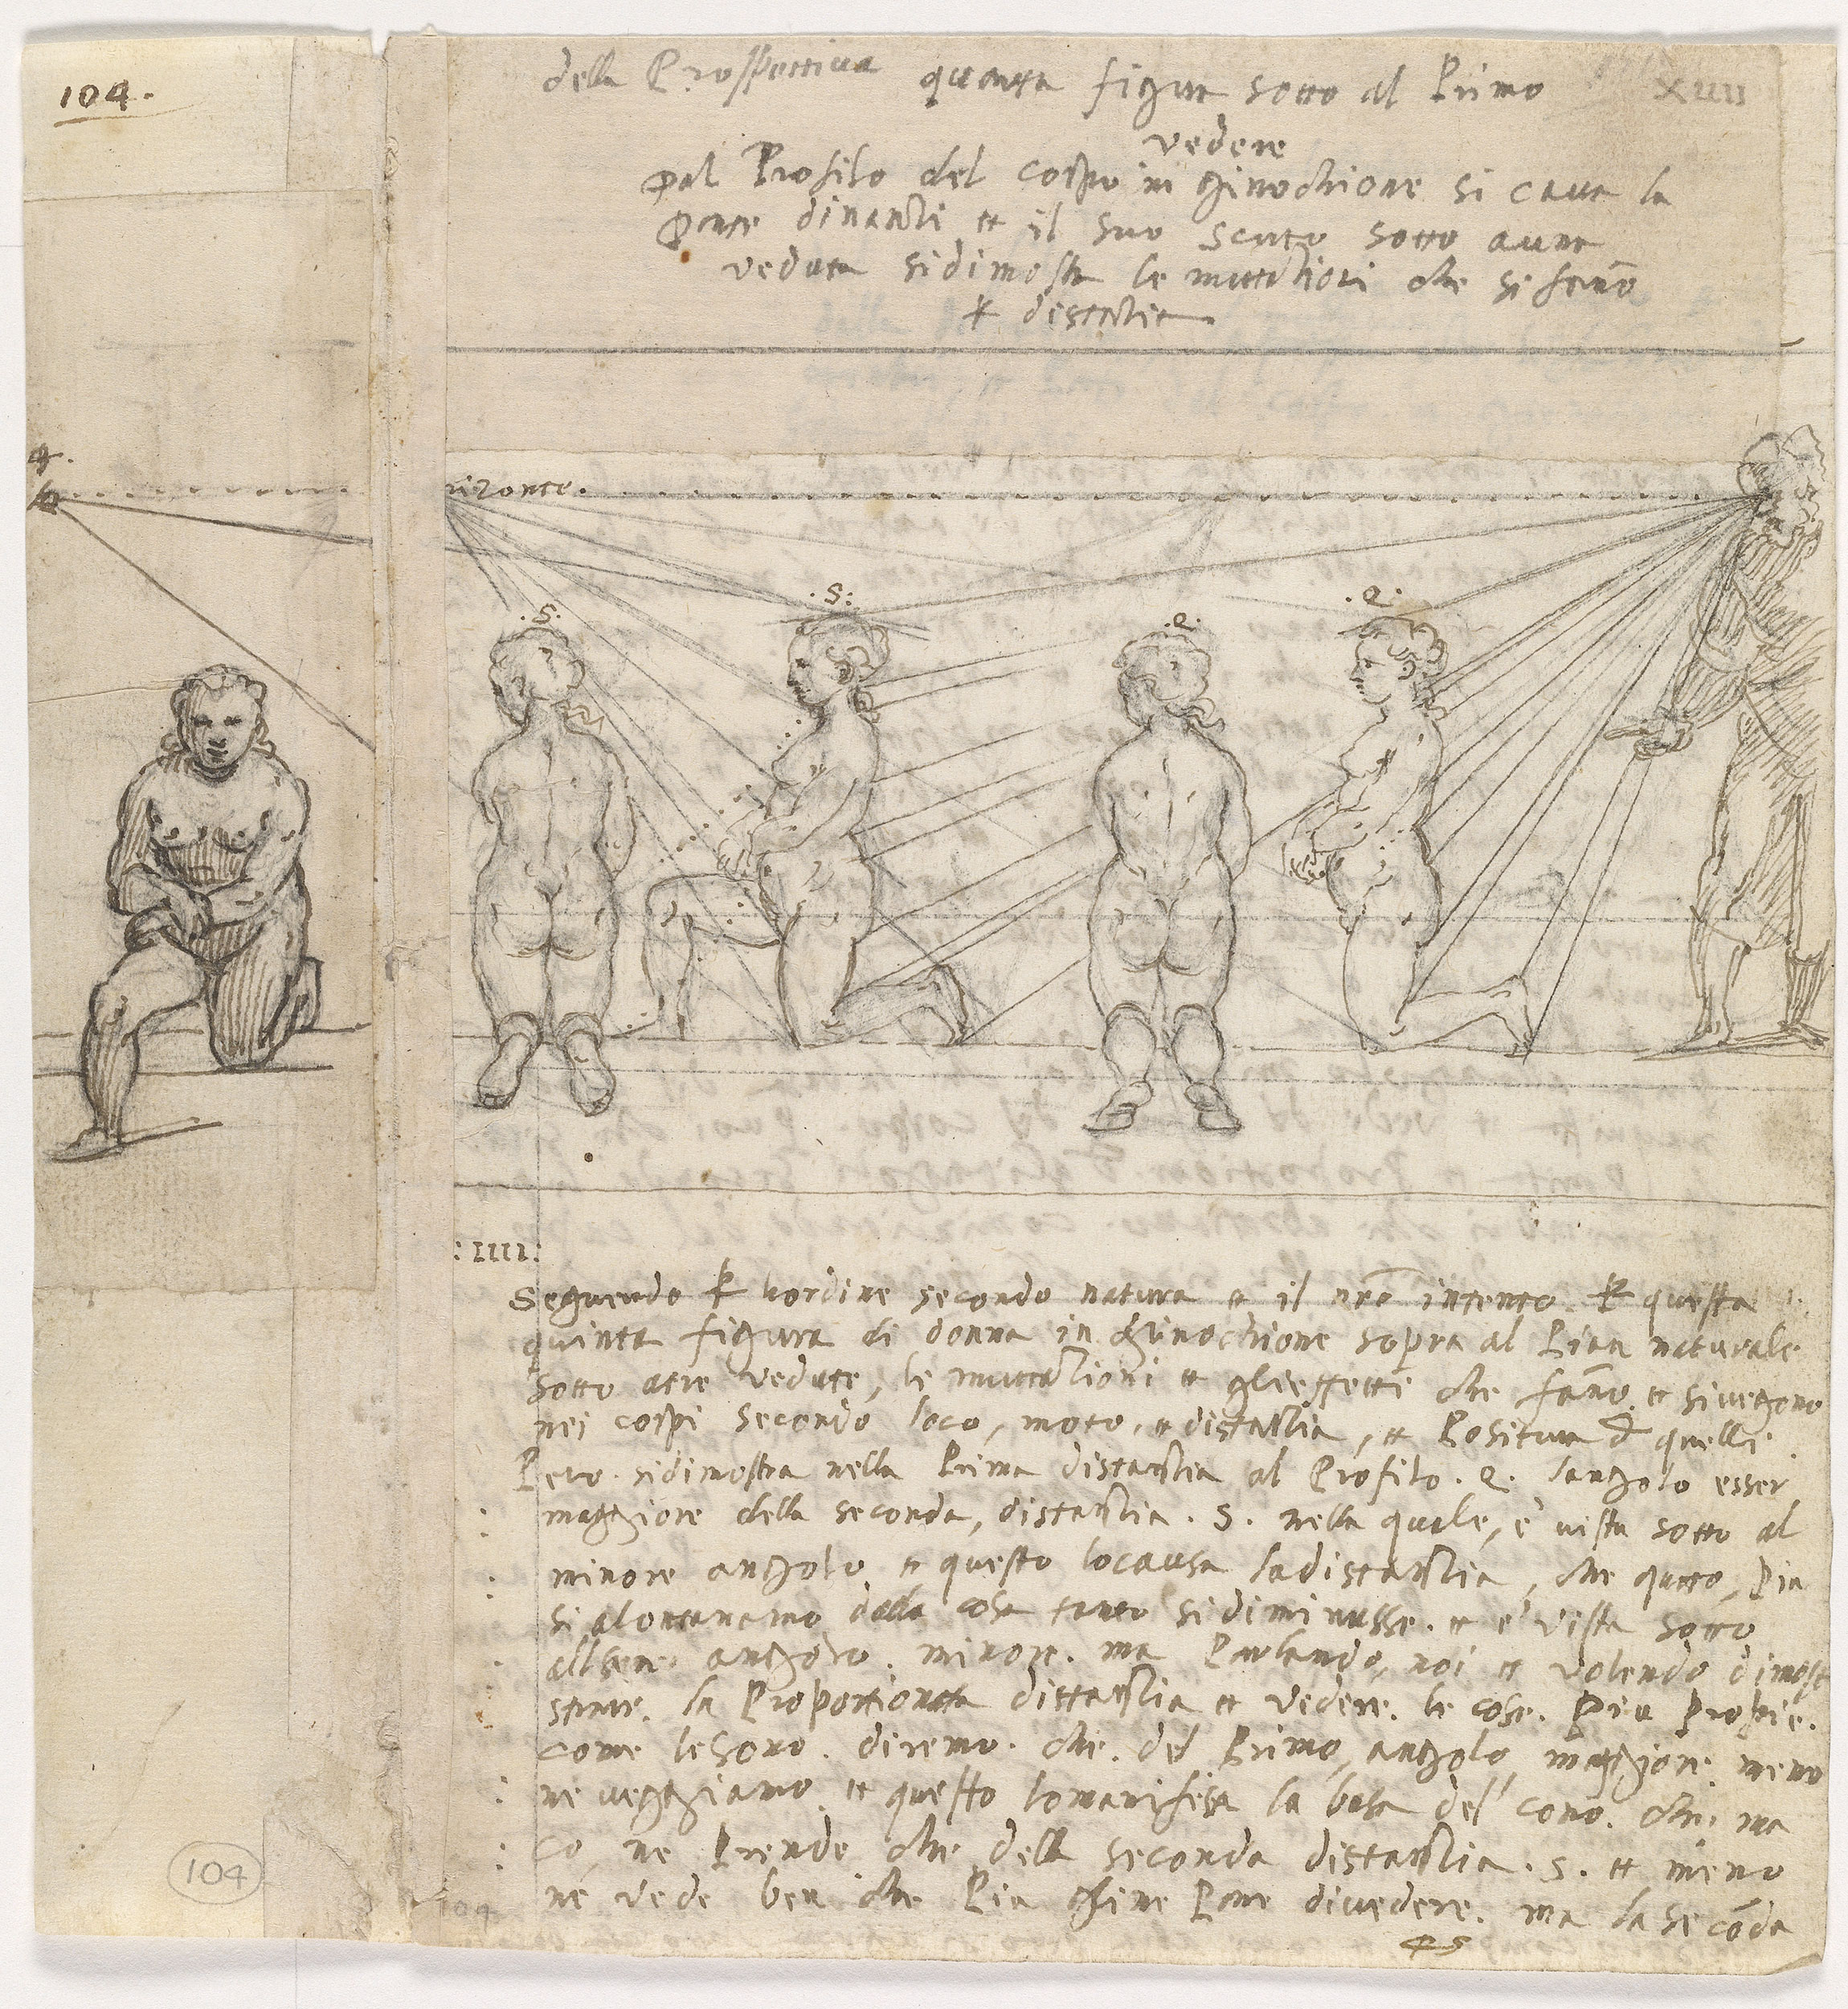 104.
della Prospettiva quarta figura sotto al Primo
XIIII
vedere
Dal Profilo del corpo in ginochione si cava la
Parte dinanti et il suo
veduta si dimostra le mutationi che si fanno
distantia
rizonte.
.S.
.S:
.Q.
.Q.
:IIII:
Seguendo l'ordine secondo natura et il nro intento questa
quinta figura di donna in ginochione sopra al Pian naturale
sotto atre vedute, le mutationi et gli effetti che fano et si vegono
nei corpi secondo loco, moto, et distantia, et Positura d quelli
Pero si dimostra nella Prima distantia al Profilo .Q. langolo esser
maggiore della seconda, distantia .S. nella quale, è vista sotto al
minore angolo et questo lo causa la distantia, che quto, Piu
si alontanamo dalla cosa tanto si diminusse. et e vista sotto
angolo minore. ma Parlando, noi et volendo dimost
strare. la Proportionata distantia et vedere. le cose. Piu Propie.
come le sono. diremo. che. del Primo, angolo, maggiore meno
ne veggiamo. et questo lo manifesta la basa del cono. che ma
co, ne Prende che della seconda distantia .S. et meno
ne vede ben che Piu Pare di vedere. ma la secōda
104
104